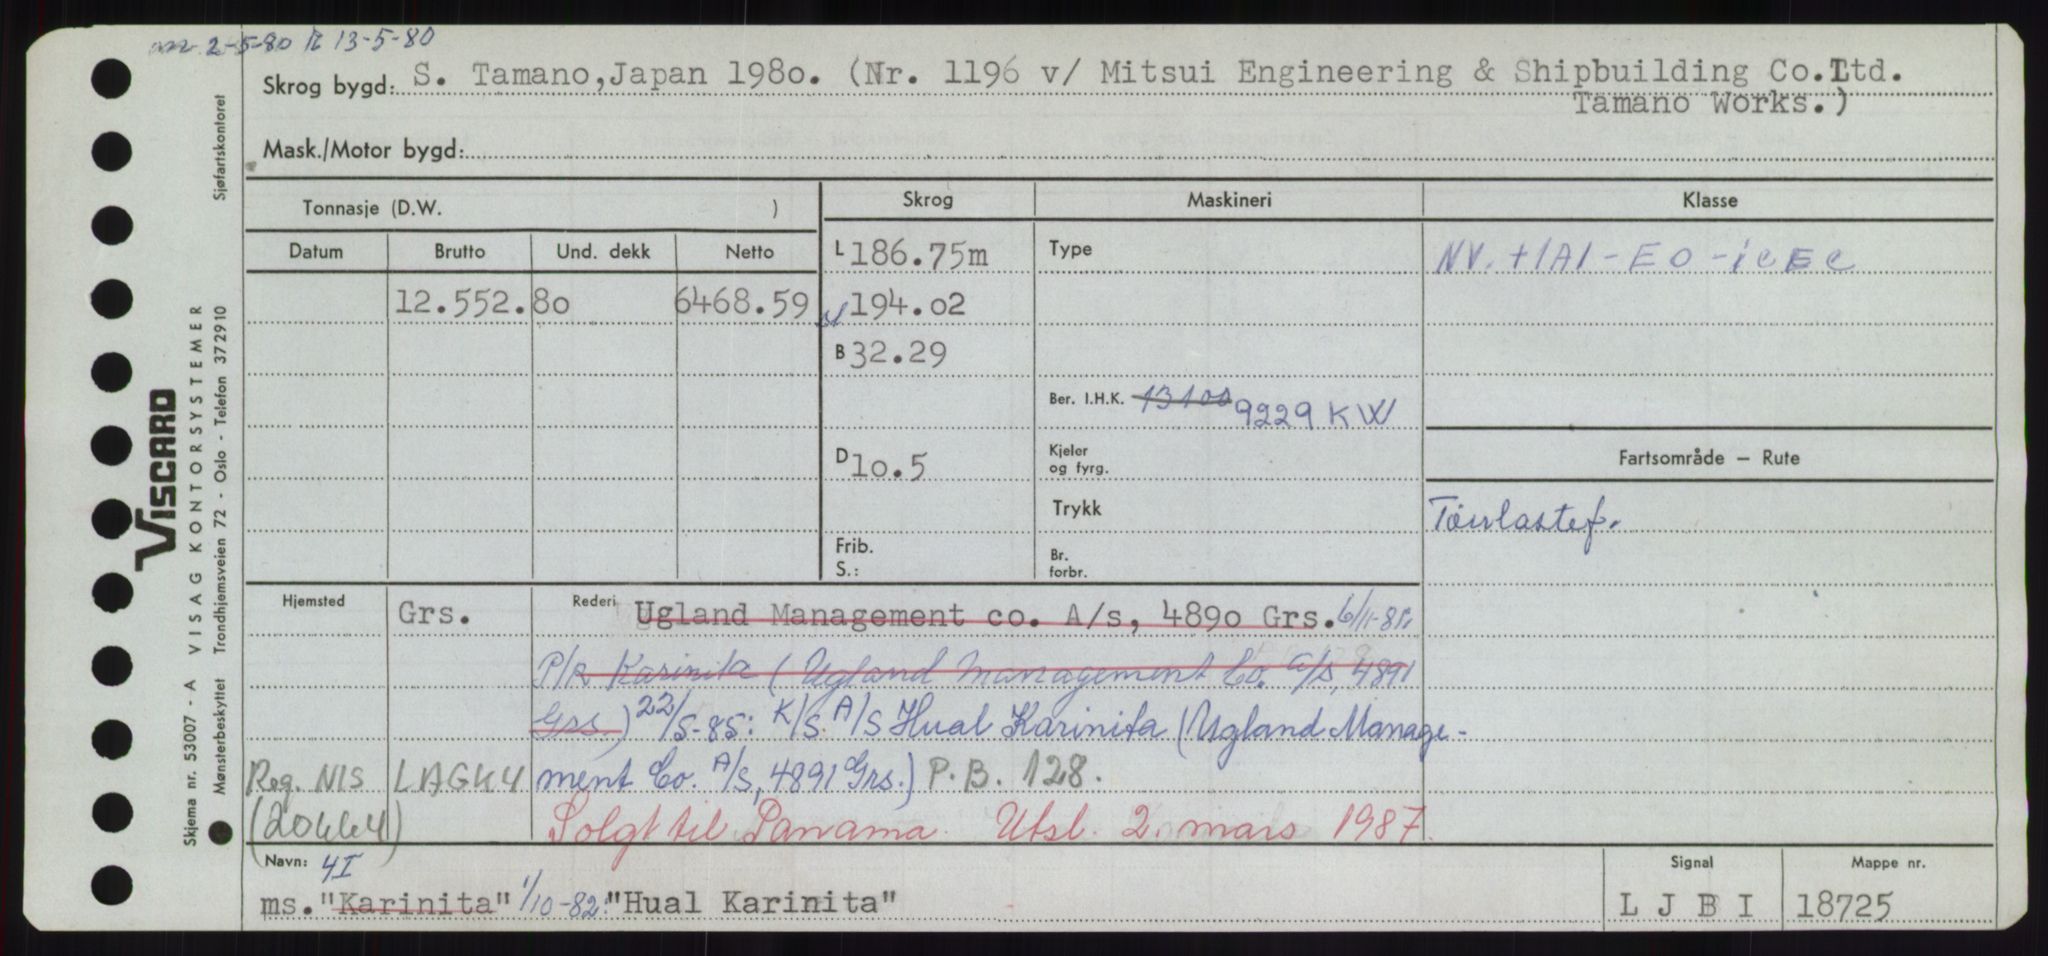 2-5-80 R 13-5-80
Skrog bygd: S. Tamano, Japan 1980. (Nr. 1196 v/ Mitsui Engineering & Shipbuilding Co.Ltd.
Tamano Works.)
Mask./Motor bygd:
Tonnasje (D.W. )
Skrog Maskineri Klasse
Datum Brutto Und. dekk Netto
L 186.75m
Type
NV. +1A1-EO-ICE C
12.552.80 6468.59
sl 194.02
B 32.29
Ber. I.H.K. 13100 9229 KW
D 10.5
Kjeler
og fyrg.
Fartsområde — Rute
Trykk
Tørrlastef.
Frib.
S.:
Br.
forbr.
Hjemsted Grs. Rederi Ugland Management co. A/s, 4890 Grs. 6/11-81:
P/R Karinita (Ugland Management Co. A/S, 4891
Grs) 22/5-85: K/S. A/S Hual Karinita (Ugland Manage-
Reg. NIS LAGK4 ment Co. A/S, 4891 Grs.) P.B. 128.
Solgt til Panama. Utsl. 2. mars 1987.
Navn: 4I
ms. "Karinita" 1/10-82: "Hual Karinita"
Signal
L J B I
Mappe nr.
18725
VISCARD
VISAG KONTORSYSTEMER
Sjøfartskontoret
Skjema nr. 53007 - A
Mønsterbeskyttet Trondhjemsveien 72 - Oslo - Telefon 372910